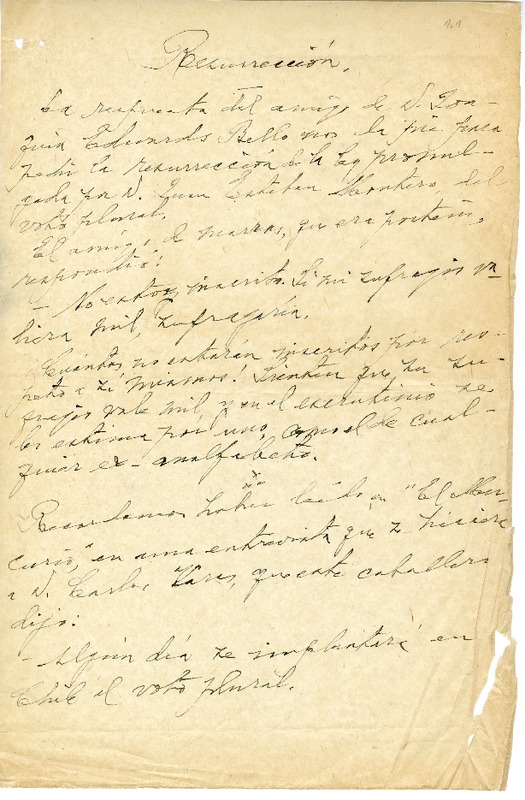 Resurrección.
La respuesta del amigo de D. Joa-
quín Edwards Bello nos da pie para
pedir la resurrección de la ley promul-
gada por D. Juan Esteban Montero, del
voto plural.
El amigo de marras, que era porteño,
respondió:
- No estoy inscrito. Si mi sufragio va-
liera mil, sufragaría.
Cuántos no estarán inscritos por res-
peto a sí mismos! Sienten que su su-
fragio vale mil, y en el escrutinio se
les estima por uno, como el de cual-
quier ex-analfabeto.
Recordamos haber leído en "El Mer-
curio", en una entrevista que se hiciera
a D. Carlos Vares, que este caballero
dijo:
- Algún día se implantará en
Chile el voto plural.